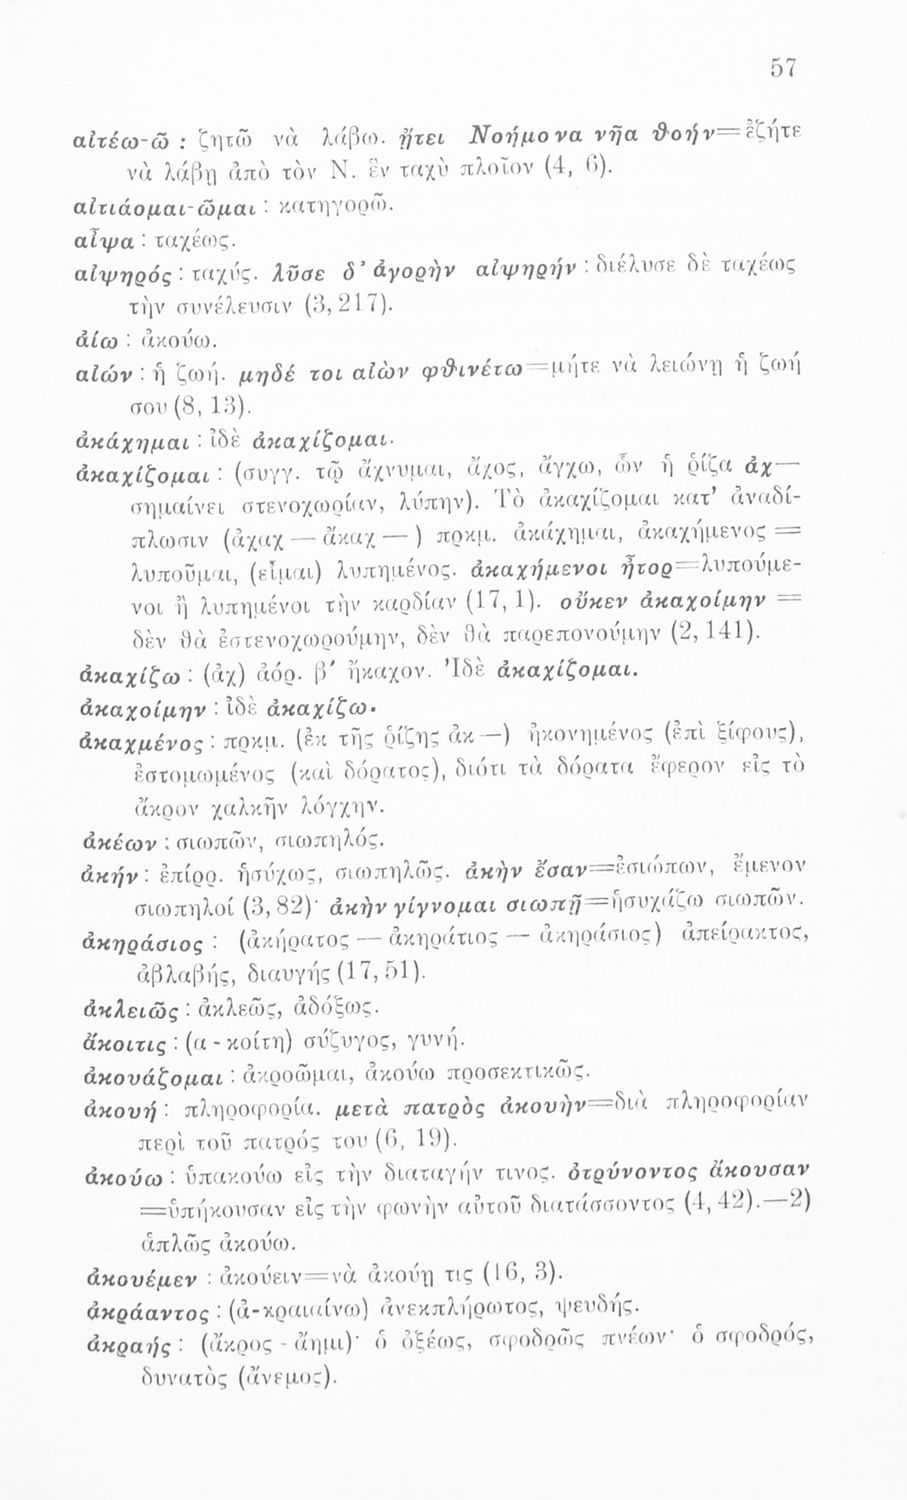 57
αἰτέω-ῶ : ζητῶ νὰ λάβω. ᾔτει Νοήμονα νῆα θοήν=ἐζήτε
νὰ λάβῃ ἀπὸ τὸν Ν. ἓν ταχὺ πλοῖον (4, 6).
αἰτιάομαι-ῶμαι : κατηγορῶ.
αἶψα : ταχέως.
αἰψηρός : ταχύς. λῦσε δ᾽ ἀγορὴν αἰψηρήν : διέλυσε δὲ ταχέως
τὴν συνέλευσιν (3, 217).
ἀίω : ἀκούω.
αἰών : ἡ ζωή. μηδέ τοι αἰὼν φθινέτω=μήτε νὰ λειώνῃ ἡ ζωή
σου (8, 13).
ἀκάχημαι : ἰδὲ ἀκαχίζομαι.
ἀκαχίζομαι : (συγγ. τῷ ἄχνυμαι, ἄχος, ἄγχω, ὧν ἡ ῥίζα ἀχ—
σημαίνει στενοχωρίαν, λύπην). Τὸ ἀκαχίζομαι κατ᾽ ἀναδί-
πλωσιν (ἀχαχ — ἄκαχ — ) πρκμ. ἀκάχημαι, ἀκαχήμενος =
λυποῦμαι, (εἶμαι) λυπημένος. ἀκαχήμενοι ἦτορ=λυπούμε-
νοι ἢ λυπημένοι τὴν καρδίαν (17, 1). οὔκεν ἀκαχοίμην =
δὲν θὰ ἐστενοχωρούμην, δὲν θὰ παρεπονούμην (2, 141).
ἀκαχίζω : (ἀχ) ἀόρ. β΄ ἤκαχον. Ἰδὲ ἀκαχίζομαι.
ἀκαχοίμην : ἰδὲ ἀκαχίζω.
ἀκαχμένος : πρκμ. (ἐκ τῆς ῥίζης ἀκ —) ἠκονημένος (ἐπὶ ξίφους),
ἐστομωμένος (καὶ δόρατος), διότι τὰ δόρατα ἔφερον εἰς τὸ
ἄκρον χαλκῆν λόγχην.
ἀκέων : σιωπῶν, σιωπηλός.
ἀκήν : ἐπίρρ. ἡσύχως, σιωπηλῶς. ἀκὴν ἔσαν=ἐσιώπων, ἔμενον
σιωπηλοί (3, 82)· ἀκὴν γίγνομαι σιωπῇ=ἡσυχάζω σιωπῶν.
ἀκηράσιος : (ἀκήρατος — ἀκηράτιος — ἀκηράσιος) ἀπείρακτος,
ἀβλαβής, διαυγής (17, 51).
ἀκλειῶς : ἀκλεῶς, ἀδόξως.
ἄκοιτις : (α - κοίτη) σύζυγος, γυνή.
ἀκουάζομαι : ἀκροῶμαι, ἀκούω προσεκτικῶς.
ἀκουή : πληροφορία. μετὰ πατρὸς ἀκουὴν=διὰ πληροφορίαν
περὶ τοῦ πατρός του (6, 19).
ἀκούω : ὑπακούω εἰς τὴν διαταγήν τινος. ὀτρύνοντος ἄκουσαν
=ὑπήκουσαν εἰς τὴν φωνὴν αὐτοῦ διατάσσοντος (4, 42).—2)
ἁπλῶς ἀκούω.
ἀκουέμεν : ἀκούειν=νὰ ἀκούῃ τις (16, 3).
ἀκράαντος : (ἀ-κραιαίνω) ἀνεκπλήρωτος, ψευδής.
ἀκραής : (ἄκρος - ἄημι)· ὁ ὀξέως, σφοδρῶς πνέων· ὁ σφοδρός,
δυνατὸς (ἄνεμος).